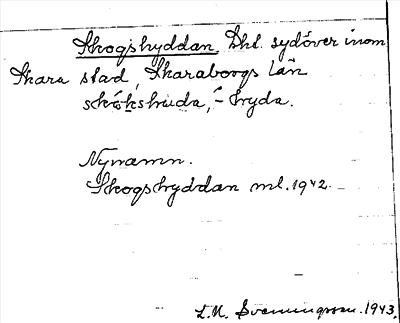 Skogshyddan. Lht. sydöver inom
Skara stad, Skaraborgs län
skåkshuda, -hyda.
Nynamn.
Skogshyddan ml. 1942.
L.M. Svenungsson. 1943.